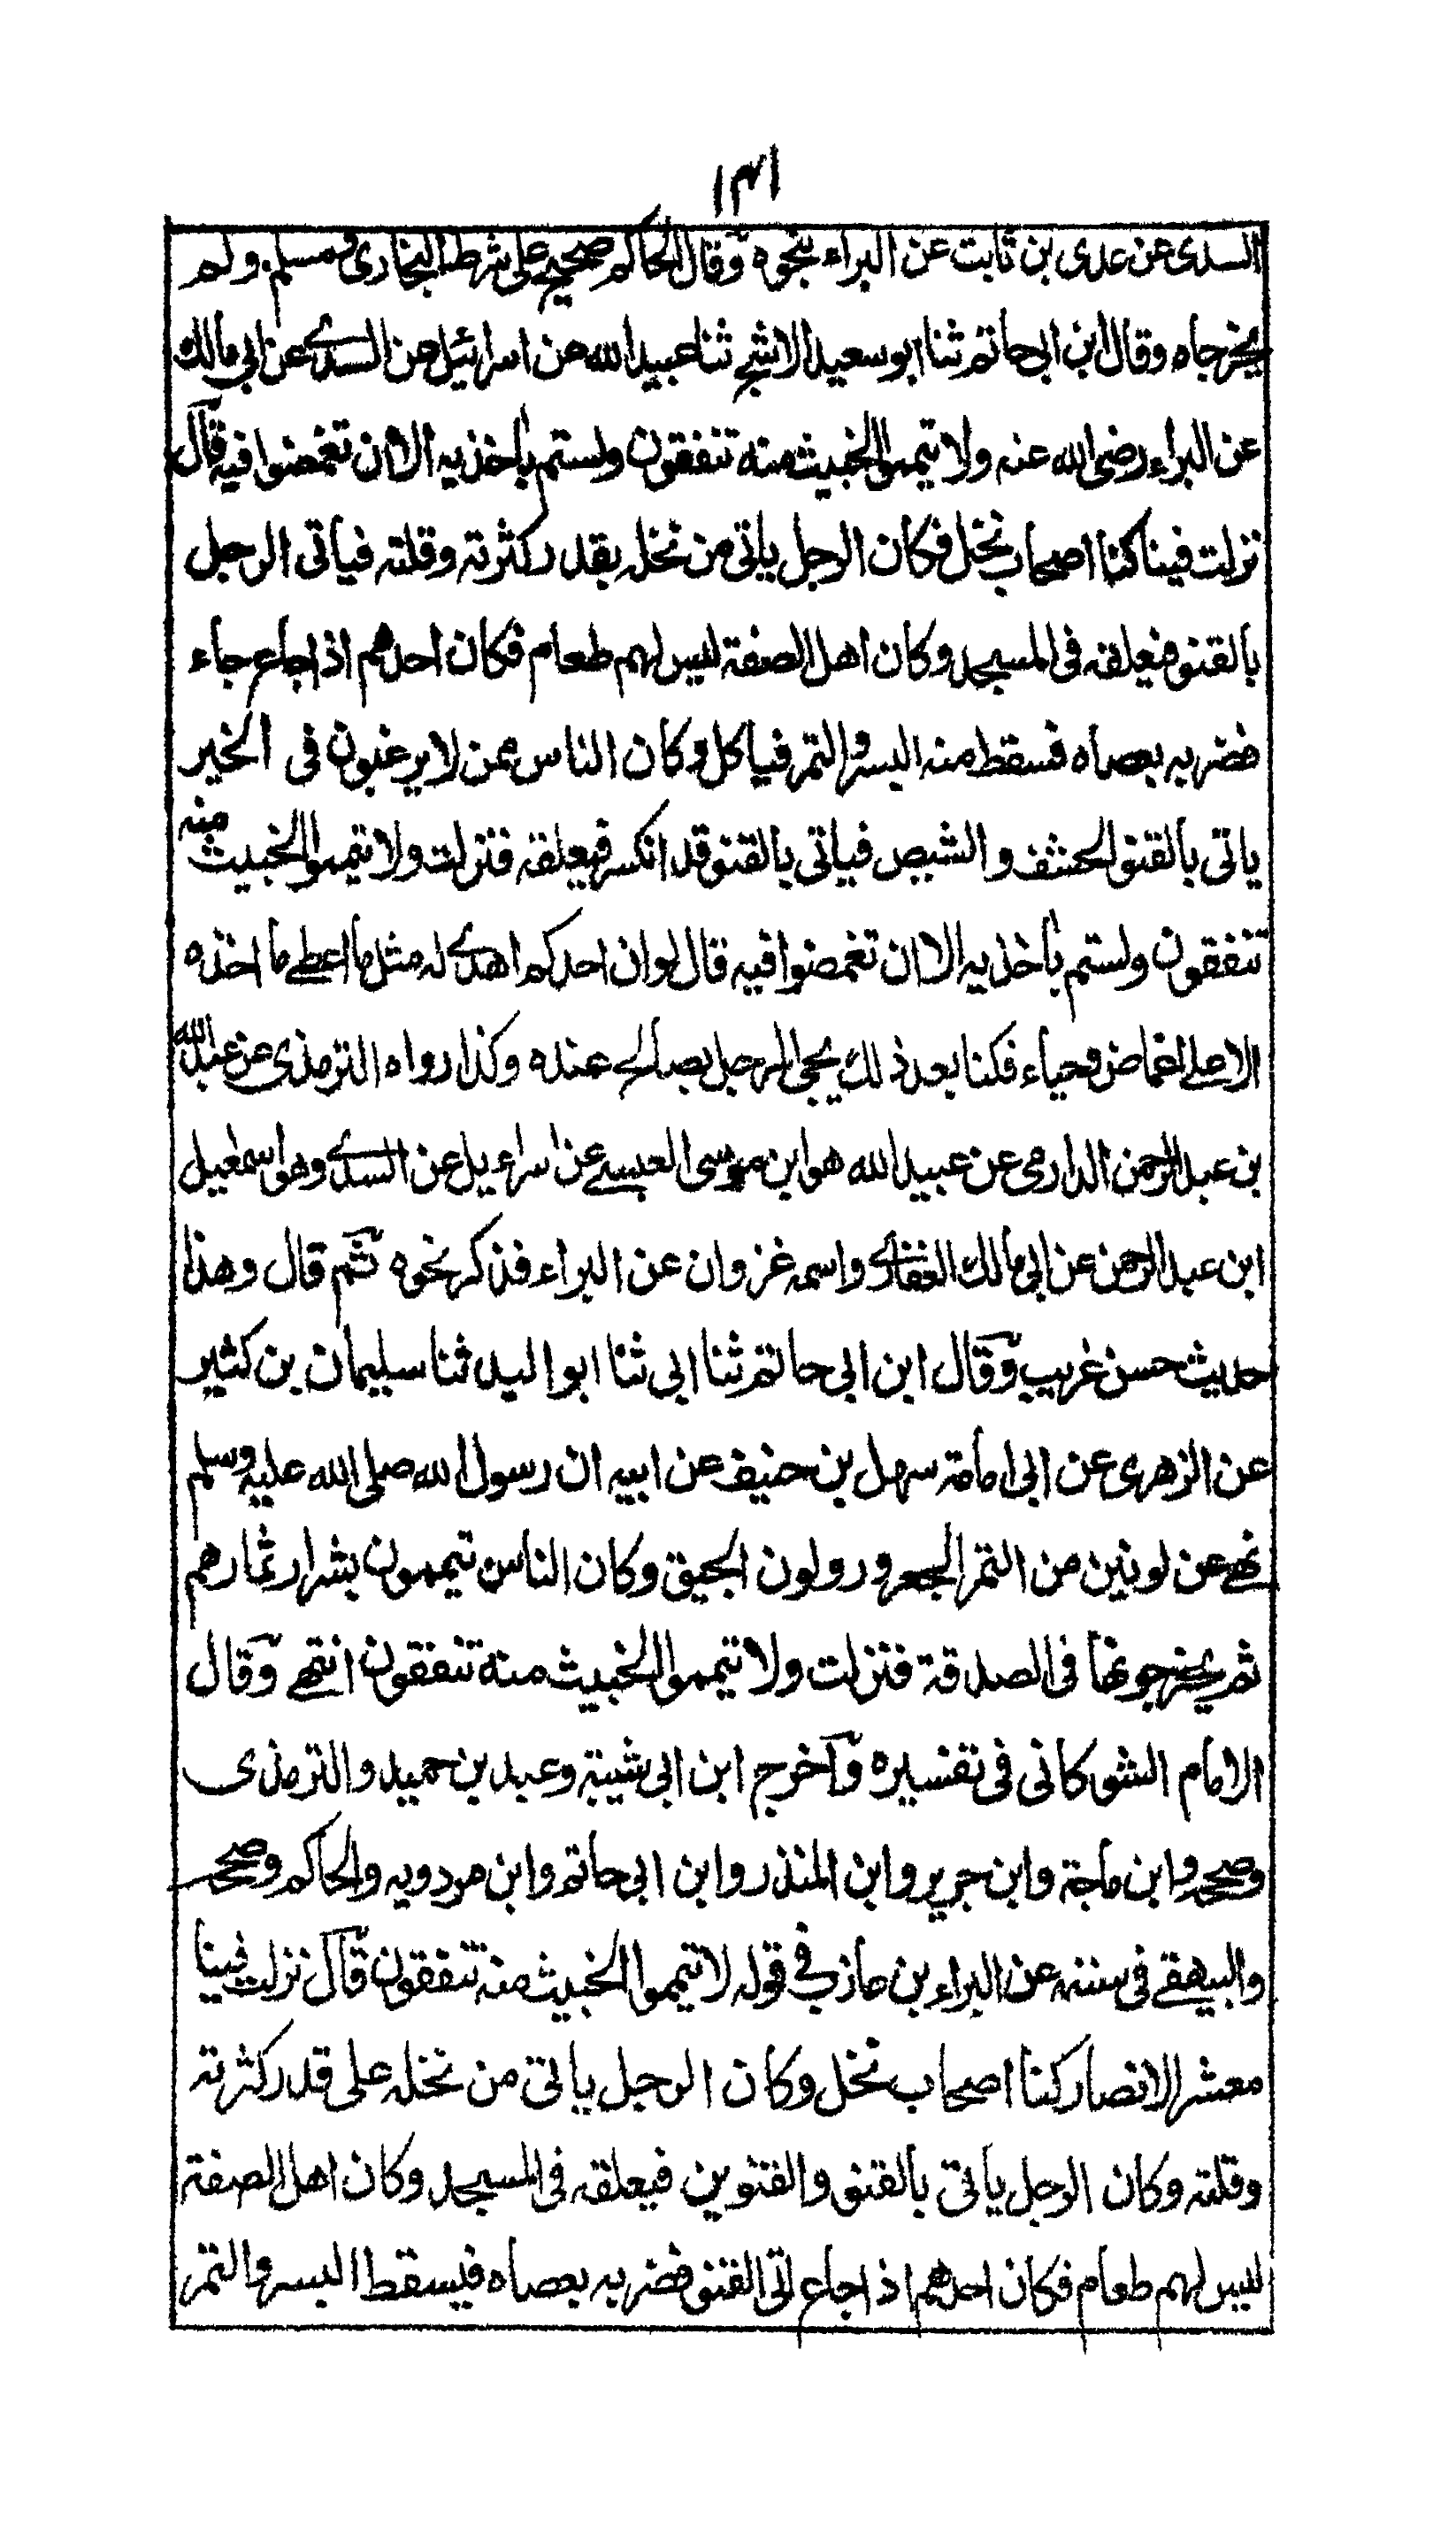 ۱۴۱
السدى عن عدى بن ثابت عن البراء بنحوه وقال الحاكم صحيح على شرط البخارى ومسلم ولم
يخرجاه وقال ابن ابى حاتم ثنا ابو سعيد الاشج ثنا عبيد الله عن اسرائيل عن السدى عن ابى مالك
عن البراء رضى الله عنه ولا تيمموا الخبيث منه تنفقون ولستم باخذيه الا ان تغمضوا فيه قال
نزلت فينا كنا اصحاب نخل فكان الرجل ياتى من نخله بقدر كثرته وقلته فياتى الرجل
بالقنو فيعلقه فى المسجد وكان اهل الصفة ليس لهم طعام فكان احدهم اذا جاع جاء
فضربه بعصاه فسقط منه البسر والتمر فياكل وكان الناس ممن لا يرغبون فى الخير
ياتى بالقنو الحشف والشيص فياتى بالقنو قد انكسر فيعلقه فنزلت ولا تيمموا الخبيث منه
تنفقون ولستم باخذيه الا ان تغمضوا فيه قال لو ان احدكم اهدى له مثل ما اعطى ما اخذه
الا على اغماض وحياء فكنا بعد ذلك يجى الرجل بصالح عنده وكذا رواه الترمذى عن عبد الله
بن عبد الرحمن الدارمى عن عبيد الله هو ابن موسى العبسى عن اسراءيل عن السدى وهو اسمعيل
ابن عبد الرحمن عن ابى مالك الغفارى واسمه غزوان عن البراء فذكر نحوه ثم قال وهذا
حديث حسن غريب وقال ابن ابى حاتم ثنا ابى ثنا ابو اليد ثنا سليمان بن كثير
عن الزهرى عن ابى امامة سهل بن حنيف عن ابيه ان رسول الله صلى الله عليه وسلم
نهى عن لونين من التمر الجعرور ولون الحبيق وكان الناس تيممون بشرار ثمارهم
ثم يخرجونها فى الصدقة فنزلت ولا تيمموا الخبيث منه تنفقون انتهى وقال
الامام الشوكانى فى تفسيره وآخرج ابن ابى شيبة وعبد بن حميد والترمذى
وصححه وابن ماجة وابن جرير وابن المنذر وابن ابى حاتم وابن مردويه والحاكم وصححه
والبيهقى فى سننه عن البراء بن عازب فى قوله لا تيمموا الخبيث منه تنفقون قال نزلت فينا
معشر الانصار كنا اصحاب نخل وكان الرجل ياتى من نخله على قدر كثرته
وقلته وكان الرجل ياتى بالقنو والقنوين فيعلقه فى المسجد وكان اهل الصفة
ليس لهم طعام فكان احدهم اذا جاع اتى القنو فضربه بعصاه فيسقط البسر والتمر